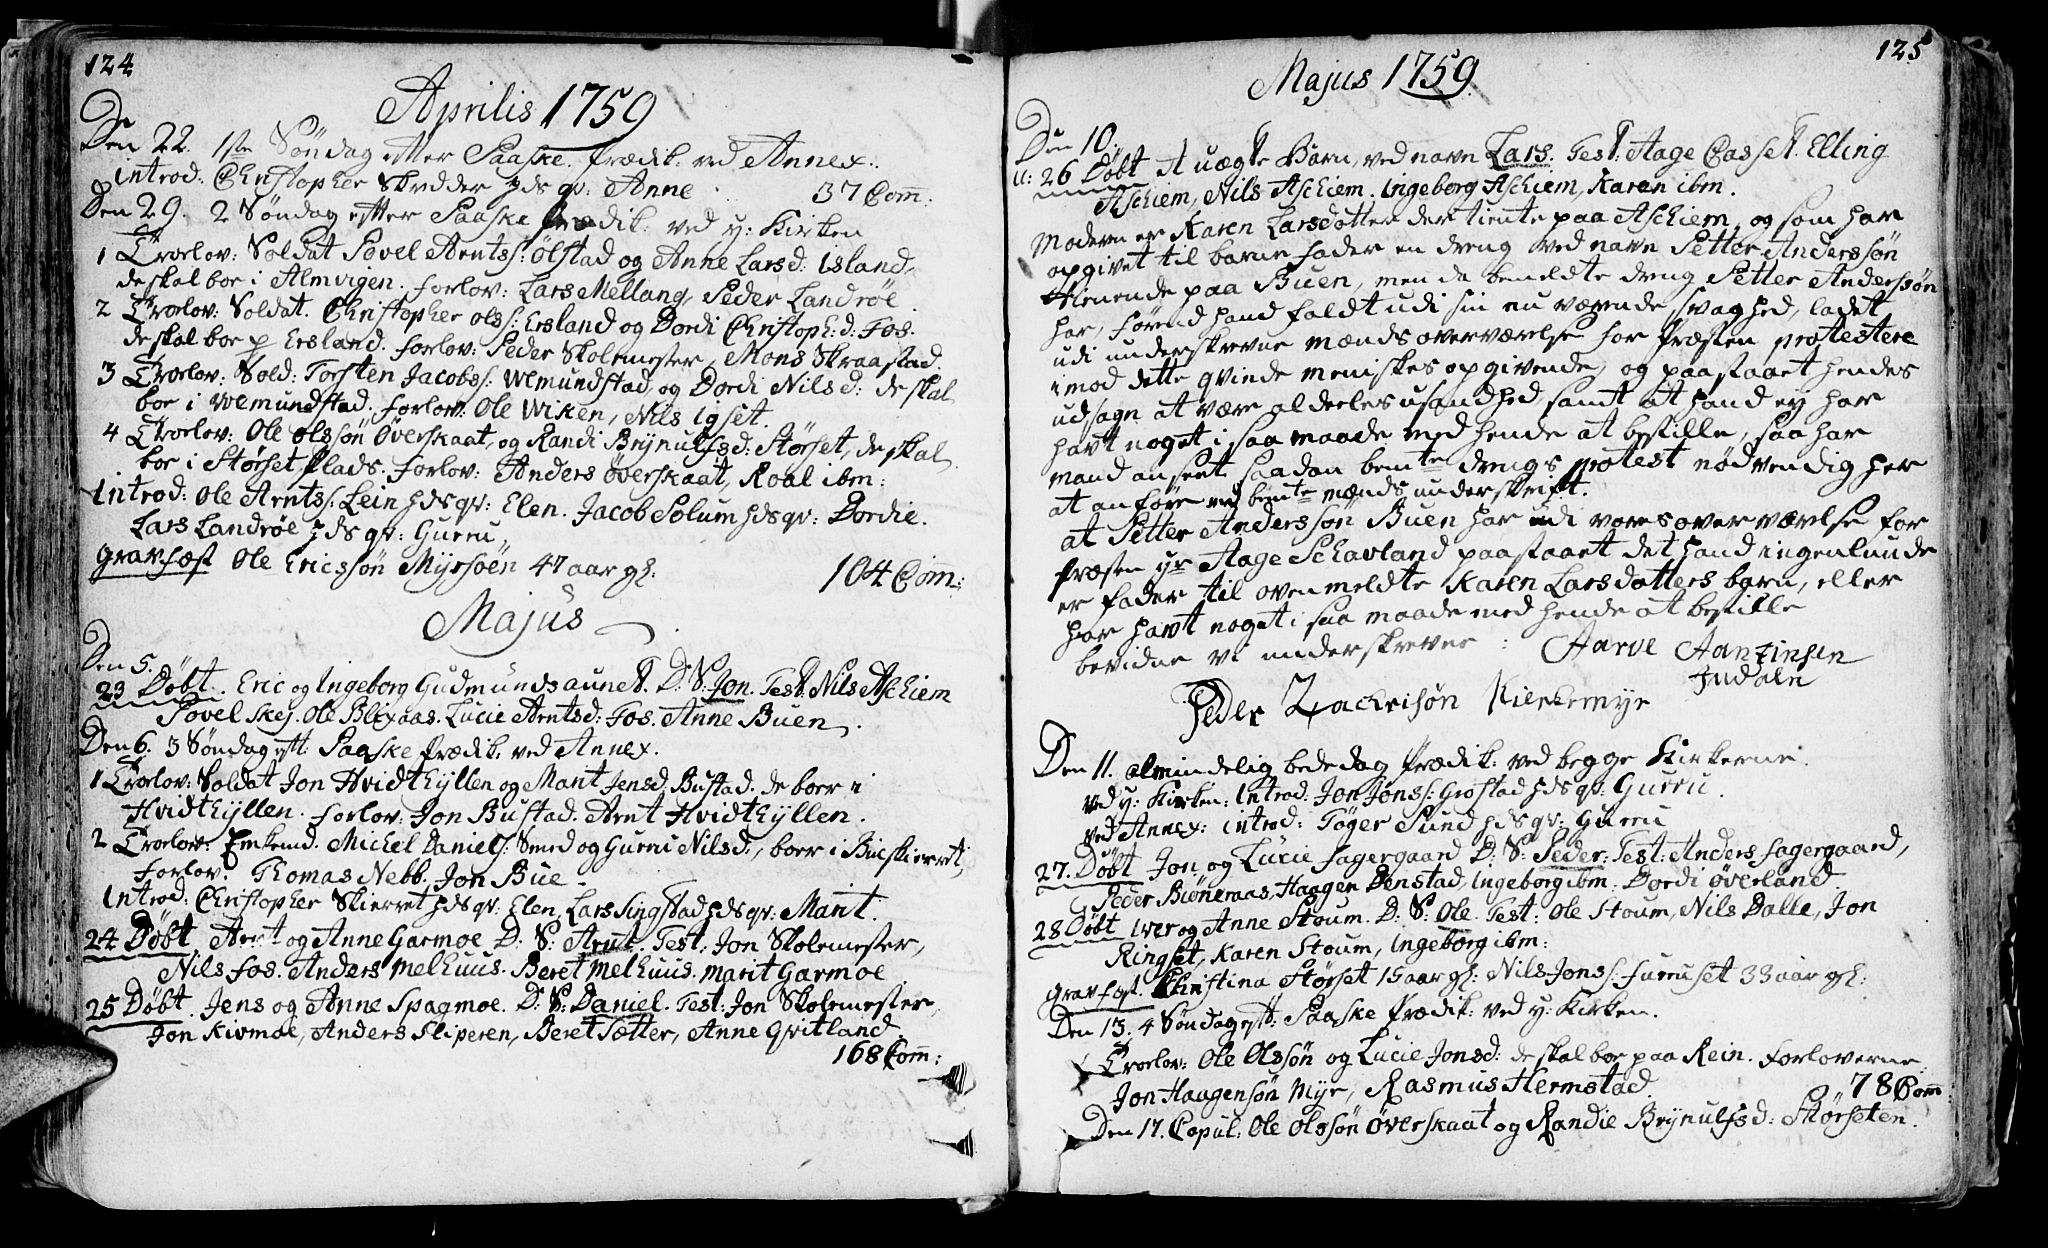 124
Aprilis 1759
Den 22. 1ste Søndag efter Paaske. Prædik: ved Annex.
introd: Christopher Skrædder hds qv: Anne 37 Com:
Den 29. 2 Søndag efter Paaske Prædik: ved y: Kirken
1 Trorlov: Soldat Povel Arnts: Ølstad og Anne Larsd: Island,
de skal boe i Almvigen. Forlov: Lars Mellang, Peder Landrøe
2 Trorlov: Soldat. Christopher ols: Ersland og Dordi Christoph: d: Fos.
de skal boe p Ersland. Forlov: Peder Skolemester, Mons Skraastad.
3 Trorlov: Sold: Torsten Jacobs: Wemundstad og Dordi Nilsd: de skal
boe i Wemundstad. Forlov: Ole Wiken, Nils Igset.
4 Trorlov: Ole olssøn Øverskaat, og Randi Brynulfsd: Størset, de skal
boe i Størset Plads. Forlov: Anders Øverskaat, Roal ibm:
Introd: Ole Arnts: Lein hds qv: Elen. Jacob Solum hds qv: Dordie.
Lars Landrøe hds qv: Guru,
Gravfæst Ole Ericssøn Myrsøen 47 aar gl: 104 Com:
Majus
Den 5.
23 Døbt. Eric og Ingeborg Gudmundsaunet. D: S: Jon. Test. Nils Aschiem
Povel Skej. Ole Blixaas. Lucie Arntsd: Fos. Anne Buen.
Den 6. 3 Søndag eft: Paaske Prædik: ved Annex.
1 Trorlov: Soldat Jon Hvidthyllen og Marit Jensd. Bustad. de boer i
Hvidthyllen. Forlov: Jon Bustad. Arnt Hvidthyllen.
2 Trorlov: Enkemd. Michel Daniels: Smed og Guru Nilsd:, boer i Buskierret,
Forlov: Thomas Nebb. Jon Bue.
Introd: Christopher Skierret hds qv: Elen, Lars Singstad hds qv: Marit.
24 Døbt. Arnt og Anne Garmoe D: S: Arnt. Test: Jon Skolemester,
Nils Fos. Anders Melhuus. Beret Melhuus. Marit Garmoe
25 Døbt. Jens og Anne Spagmoe. D: S: Daniel. Test: Jon Skolemester,
Jon Kivmoe, Anders Sliperen, Beret Sætter, Anne Gritland.
168 Com:
125
Majus 1759
Den 10.
u: 26 Døbt Et uægte Barn, ved navn Lars. Test: Aage Casset. Elling
Aschiem, Nils Aschiem. Ingeborg Aschiem, Karen ibm.
Moderen er Karen Larsdotter der tiente paa Aschiem, og som har
opgivet til barne fader en dreng ved navn Petter Anderssøn
tienende paa Buen, men da bemeldte dreng Petter Anderssøn
har, førend hand faldt udi sin nu værende svaghed, ladet
udi underskrevne mænds overværelse for Præsten protestere
imod dette qvinde meniskes opgivende, og paastaaet hendes
udsagn at være alderles usandhed samt at hand ey har
havt noget i saa maade med hende at bestille, saa har
mand anseet saadan bemte drengs protest nødvendig her
at anføre med bemte mænds underskrift.
at Petter Anderssøn Buen har udi vores overværelse for
Præsten hr Aage Schavland paastaaet det hand ingenlunde
er fader til ovenmeldte Karen Larsdotters barn, eller
har havt noget i saa maade med hende at bestille
bevidne vi underskrevne: Aarve Aanzinsen
Indalen
Peder Zachrisøn Kirkemyr
Den 11. almindelig bededag Prædik: ved begge Kirkerne.
ved y: Kirken: Introd: Jon Jons: Grøstad hds qv: Guru.
ved Annex: introd: Tøger Sund hds qv: Guru
27. Døbt Jon og Lucie Fagergaard D: S: Peder: Test: Anders Fagergaard,
Peder Biørneraas, Haagen Denstad, Ingeborg ibm: Dordi Øverland
28 Døbt Iver og Anne Stoum. D: S: Ole. Test: Ole Stoum, Nils Dalle, Jon
Ringset, Karen Stoum, Ingeborg ibm:
Gravfæst. Christina Størset 15 aar gl: Nils Jons: Furuset 33 aar gl:
Den 13. 4 Søndag eft: Paaske Prædik: ved y: Kirken.
Trorlov: Ole Olssøn og Lucie Jonsd: de skal boe paa Rein. Forloverne
Jon Haagensøn Myr, Rasmus Hermstad. 78 Com
Den 17. Copul: Ole Olssøn Øverskaat og Randie Brynulfsd: Størseten.